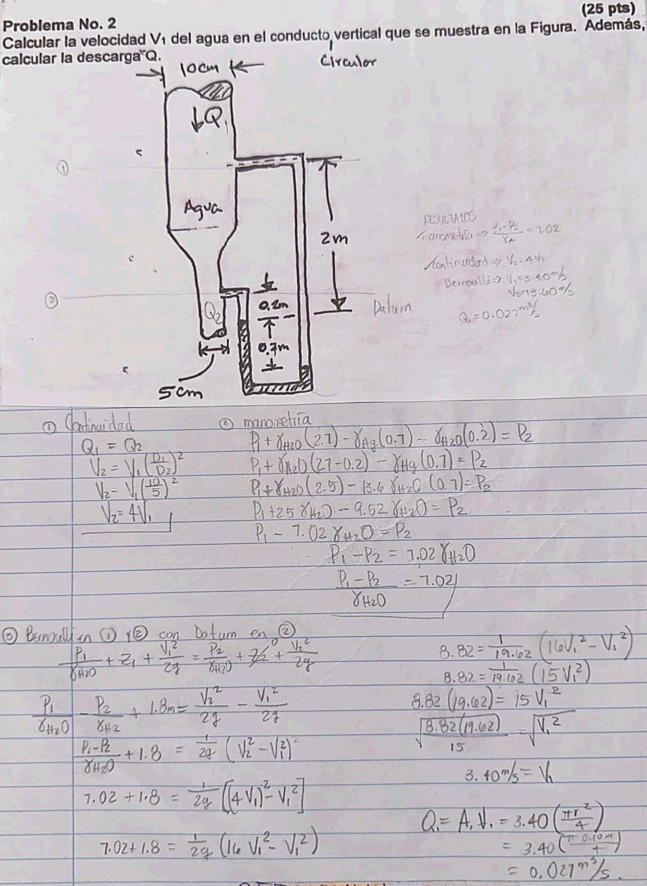 (25 pts)
Problema No. 2
Calcular la velocidad V1 del agua en el conducto vertical que se muestra en la Figura. Además,
calcular la descarga Q.
Circular
10cm
↓Q1
①
Agua
2m
②
Q2
0.2m
Datum
0.7m
5cm
RESULTADOS
Manometría => P1-P2/γA = 7.02
Continuidad => V2=4V1
Bernoulli => V1=3.40 m/s
V2=13.60 m/s
Q=0.027 m³/s
① Continuidad
Q1 = Q2
V2 = V1(D1/D2)²
V2 = V1(10/5)²
V2 = 4V1
② manometría
P1 + γH2O (2.7) - γHg (0.7) - γH2O (0.2) = P2
P1 + γH2O (2.7-0.2) - γHg (0.7) = P2
P1 + γH2O (2.5) - 13.6 γH2O (0.7) = P2
P1 + 2.5 γH2O - 9.52 γH2O = P2
P1 - 7.02 γH2O = P2
P1 - P2 = 7.02 γH2O
P1 - P2 / γH2O = 7.02
③ Bernoulli en ① y ② con Datum en ②
P1/γH2O + Z1 + V1²/2g = P2/γH2O + Z2 0 + V2²/2g
P1/γH2O - P2/γH2 + 1.8m = V2²/2g - V1²/2g
P1-P2/γH2O + 1.8 = 1/2g (V2² - V1²)
7.02 + 1.8 = 1/2g [(4V1)² - V1²]
7.02 + 1.8 = 1/2g (16 V1² - V1²)
8.82 = 1/19.62 (16V1² - V1²)
8.82 = 1/19.62 (15 V1²)
8.82 (19.62) = 15 V1²
√8.82(19.62)/15 = √V1²
3.40 m/s = V1
Q1 = A1 V1 = 3.40 (πr²/4)
= 3.40 (π 0.10m/4)
= 0.027 m³/s.